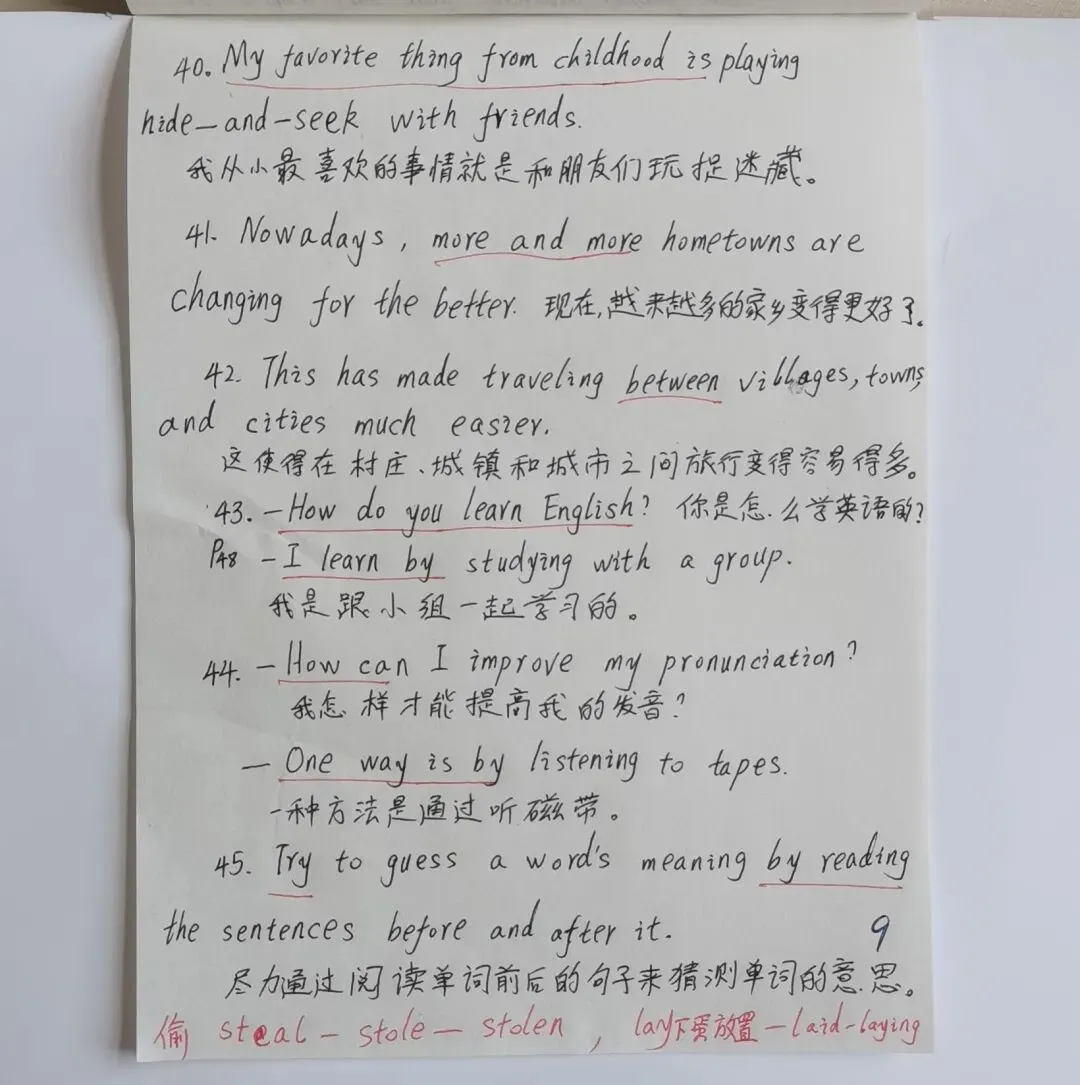 40. My favorite thing from childhood is playing
hide-and-seek with friends.
我从小最喜欢的事情就是和朋友们玩捉迷藏。
41. Nowadays, more and more hometowns are
changing for the better. 现在,越来越多的家乡变得更好了。
42. This has made traveling between villages, towns
and cities much easier.
这使得在村庄、城镇和城市之间旅行变得容易得多。
43. - How do you learn English? 你是怎么学英语的?
P48 - I learn by studying with a group.
我是跟小组一起学习的。
44. - How can I improve my pronunciation?
我怎样才能提高我的发音?
- One way is by listening to tapes.
一种方法是通过听磁带。
45. Try to guess a word's meaning by reading
the sentences before and after it. 9
尽力通过阅读单词前后的句子来猜测单词的意思。
偷 steal - stole - stolen , lay下蛋放置 - laid - laying